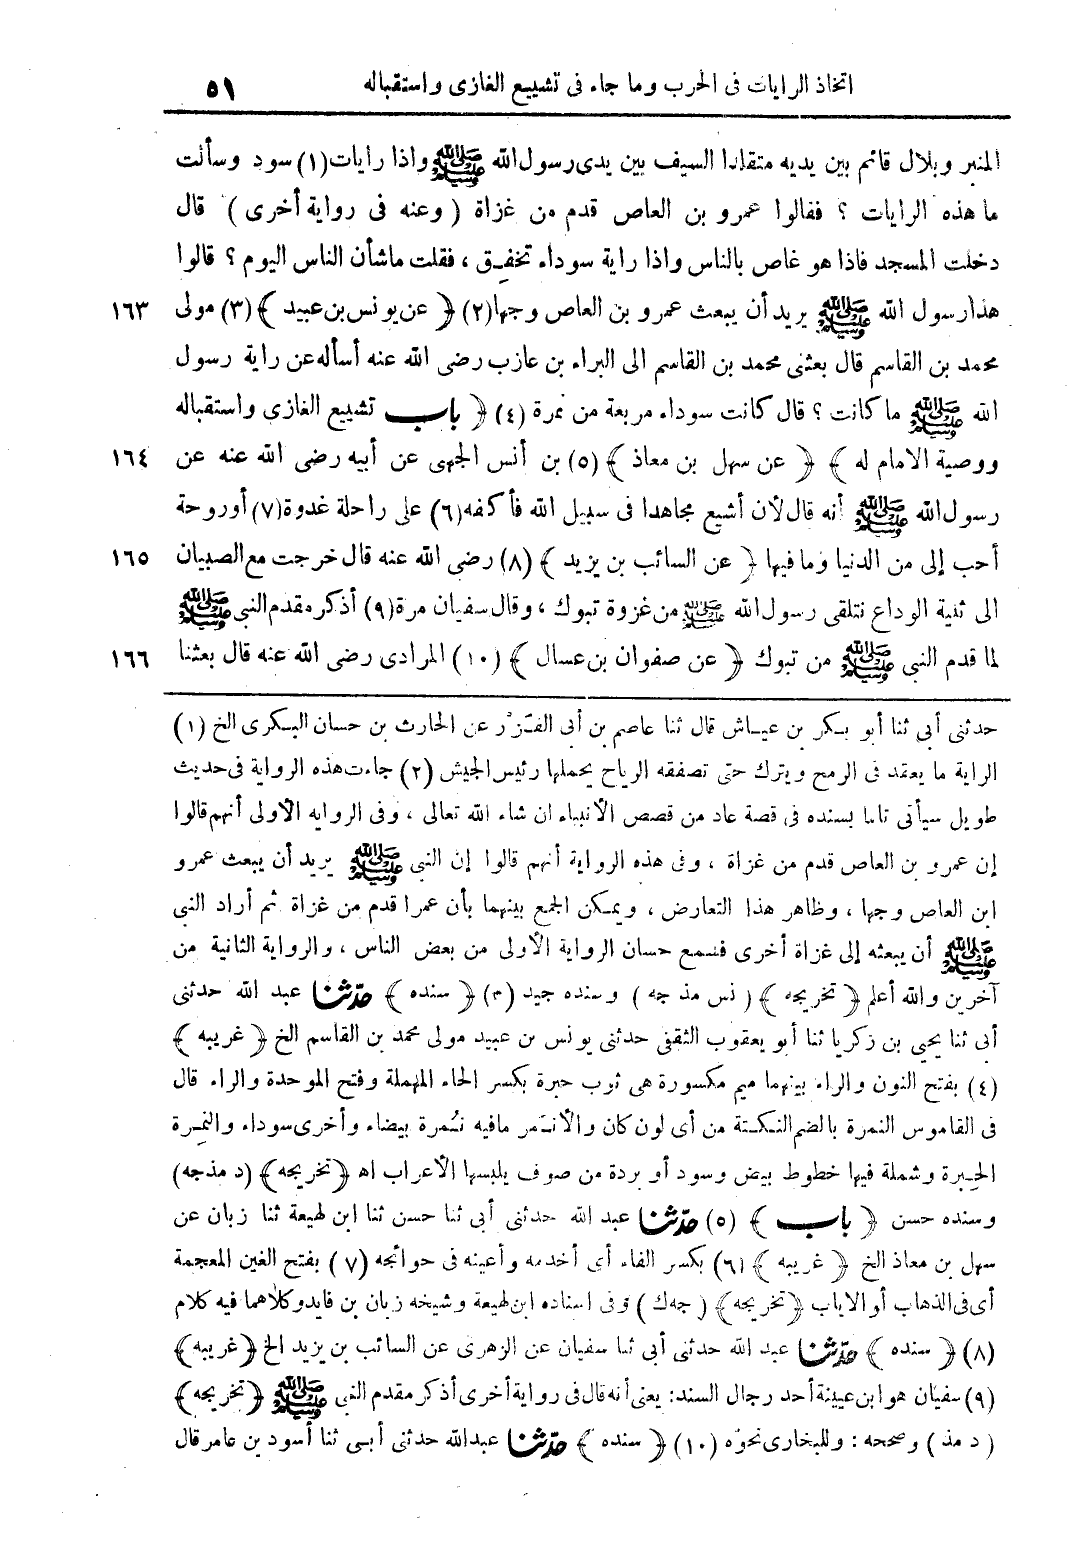 اتخاذ الرايات فى الحرب وما جاء فى تشييع الغازى واستقباله ٥١
المنبر وبلال قائم بين يديه متقلدا السيف بين يدى رسول الله ﷺ واذا رايات (١) سود وسألت
ما هذه الرايات ؟ فقالوا عمرو بن العاص قدم من غزاة ( وعنه فى رواية أخرى ) قال
دخلت المسجد فاذا هو غاص بالناس واذا راية سوداء تخفق ، فقلت ماشأن الناس اليوم ؟ قالوا
هذا رسول الله ﷺ يريد أن يبعث عمرو بن العاص وجها (٢) ﴿ عن يونس بن عبيد ﴾ (٣) مولى ١٦٣
محمد بن القاسم قال بعثنى محمد بن القاسم الى البراء بن عازب رضى الله عنه أسأله عن راية رسول
الله ﷺ ما كانت ؟ قال كانت سوداء مربعة من نمرة (٤) ﴿ باب تشييع الغازى واستقباله
ووصية الامام له ﴾ ﴿ عن سهل بن معاذ ﴾ (٥) بن أنس الجهنى عن أبيه رضى الله عنه عن ١٦٤
رسول الله ﷺ أنه قال لأن أشيع مجاهدا فى سبيل الله فأكفه (٦) على راحلة غدوة (٧) أوروحة
أحب إلى من الدنيا وما فيها ﴿ عن السائب بن يزيد ﴾ (٨) رضى الله عنه قال خرجت مع الصبيان ١٦٥
الى ثنية الوداع نتلقى رسول الله ﷺ من غزوة تبوك ، وقال سفيان مرة (٩) أذكر مقدم النبى ﷺ
لما قدم النبى ﷺ من تبوك ﴿ عن صفوان بن عسال ﴾ (١٠) المرادى رضى الله عنه قال بعثنا ١٦٦
حدثنى أبى ثنا أبو بكر بن عياش قال ثنا عاصم بن أبى الفزر عن الحارث بن حسان البكرى الخ (١)
الراية ما يعقد فى الرمح ويترك حتى تصفقه الرياح يحملها رئيس الجيش (٢) جاءت هذه الرواية فى حديث
طويل سيأتى تاما بسنده فى قصة عاد من قصص الأنبياء ان شاء الله تعالى ، وفى الروايه الأولى أنهم قالوا
إن عمرو بن العاص قدم من غزاة ، وفى هذه الرواية أنهم قالوا إن النبى ﷺ يريد أن يبعث عمرو
ابن العاص وجها ، وظاهر هذا التعارض ، ويمكن الجمع بينهما بأن عمرا قدم من غزاة ثم أراد النبى
ﷺ أن يبعثه إلى غزاة أخرى فسمع حسان الرواية الأولى من بعض الناس ، والرواية الثانية من
آخرين والله أعلم ﴿ تخريجه ﴾ ( نس مذ جه ) وسنده جيد (٣) ﴿ سنده ﴾ حدثنا عبد الله حدثنى
أبى ثنا يحيى بن زكريا ثنا أبو يعقوب الثقفى حدثنى يونس بن عبيد مولى محمد بن القاسم الخ ﴿ غريبه ﴾
(٤) بفتح النون والراء بينهما ميم مكسورة هى ثوب حبرة بكسر الحاء المهملة وفتح الموحدة والراء قال
فى القاموس النمرة بالضم النكتة من أى لون كان والأنمر مافيه نمرة بيضاء وأخرى سوداء والنمرة
الحبرة وشملة فيها خطوط بيض وسود أو بردة من صوف يلبسها الأعراب اه ﴿تخريجه﴾ (د مذجه)
وسنده حسن ﴿ باب ﴾ (٥) حدثنا عبد الله حدثنى أبى ثنا حسن ثنا ابن لهيعة ثنا زبان عن
سهل بن معاذ الخ ﴿ غريبه ﴾ (٦) بكسر الفاء أى أخدمه وأعينه فى حوائجه (٧) بفتح الغين المعجمة
أى فى الذهاب أو الاياب ﴿تخريجه﴾ ( جه ك ) وفى اسناده ابن لهيعة وشيخه زبان بن فايد وكلاهما فيه كلام
(٨) ﴿ سنده ﴾ حدثنا عبد الله حدثنى أبى ثنا سفيان عن الزهرى عن السائب بن يزيد الخ ﴿ غريبه ﴾
(٩) سفيان هو ابن عيينة أحد رجال السند: يعنى أنه قال فى رواية أخرى أذكر مقدم النبى ﷺ ﴿ تخريجه ﴾
( د مذ ) وصححه : وللبخارى نحوه (١٠) ﴿ سنده ﴾ حدثنا عبدالله حدثنى أبى ثنا أسود بن عامر قال